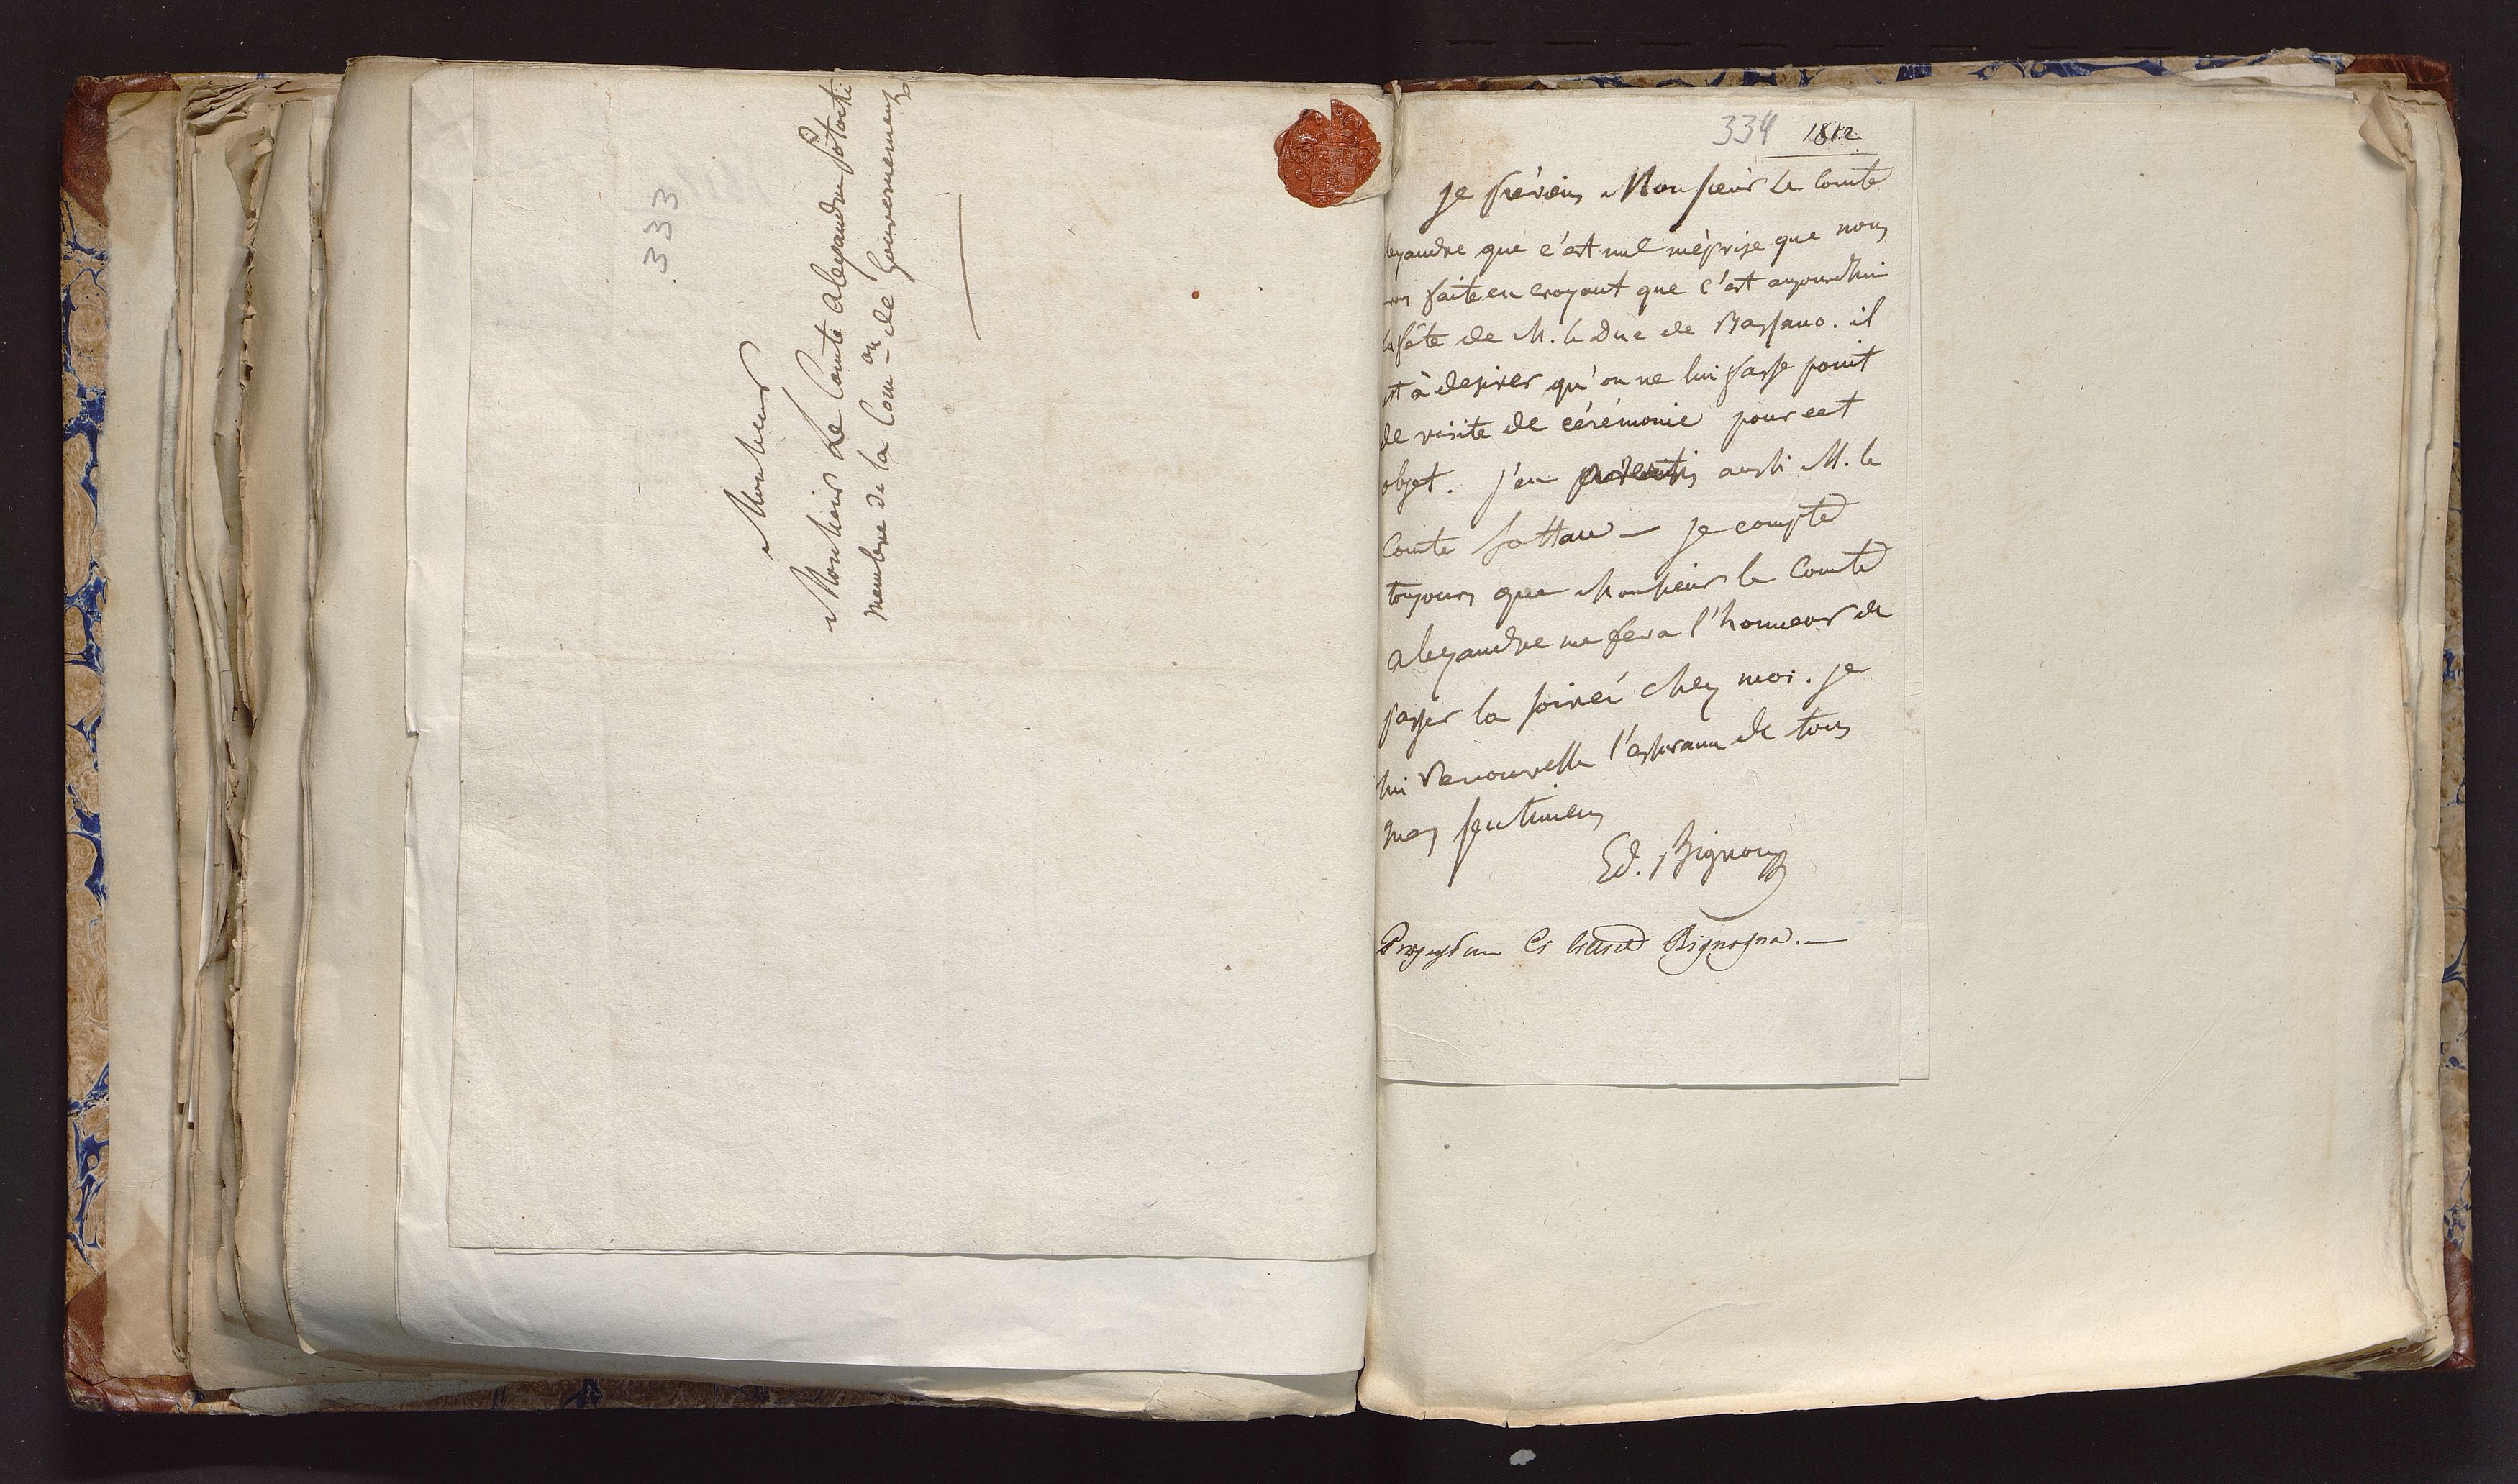 333
Monsieur
Monsieur Le Comte Alexandre Potocki
membre de la Com^on de Gouvernement
334 1812.
je préviens Monsieur Le Comte
lexandre que c'est une méprise que nous
ons faite en croyant que c'est aujourd'hui
la fête de M. le Duc de Bassano. il
est à desirer qu'on ne lui fasse point
de visite de cérémonie pour cet
objet. j'en aussi M. le
Comte — je compte
toujours que Monsieur le Comte
alexandre me fera l'honneur de
passer la soirée chez moi. je
lui renouvelle l'assurance de tous
mes sentimens
Ed. Bignon
Bignogna.—